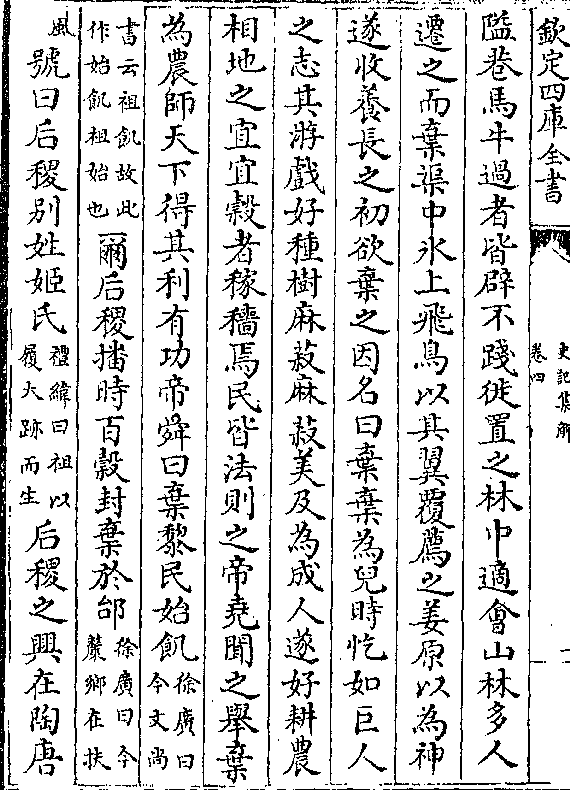 欽定四庫全書
史記集解
卷四
隘巷馬牛過者皆辟不踐徙置之林中適會山林多人
遷之而棄渠中氷上飛鳥以其翼覆薦之姜原以為神
遂收養長之初欲棄之因名曰棄棄為兒時忔如巨人
之志其游戲好種樹麻菽麻菽美及為成人遂好耕農
相地之宜宜穀者稼穡焉民皆法則之帝堯聞之舉棄
為農師天下得其利有功帝舜曰棄黎民始飢徐廣曰今文尚
書云祖飢故此作始飢祖始也爾后稷播時百穀封棄於邰徐廣曰今斄鄉在扶
風號曰后稷別姓姬氏禮緯曰祖以履大跡而生后稷之興在陶唐